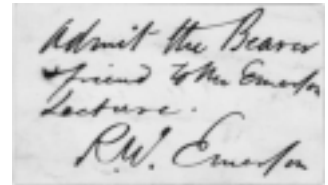 Admit the Bearer
& friend to Mr Emerson
Lecture.
R.W. Emerson